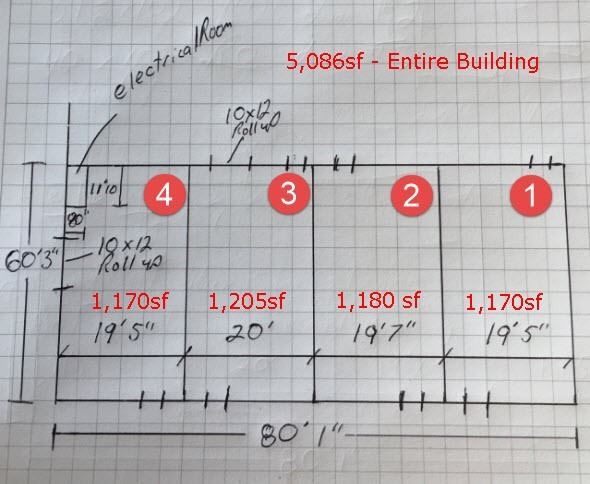 electrical Room
5,086sf - Entire Building
10x12
Roll up
11'10
4
3
2
1
80"
10x12
Roll up
60'3"
1,170sf
1,205sf
1,180 sf
1,170sf
19'5"
20'
19'7"
19'5"
80'1"